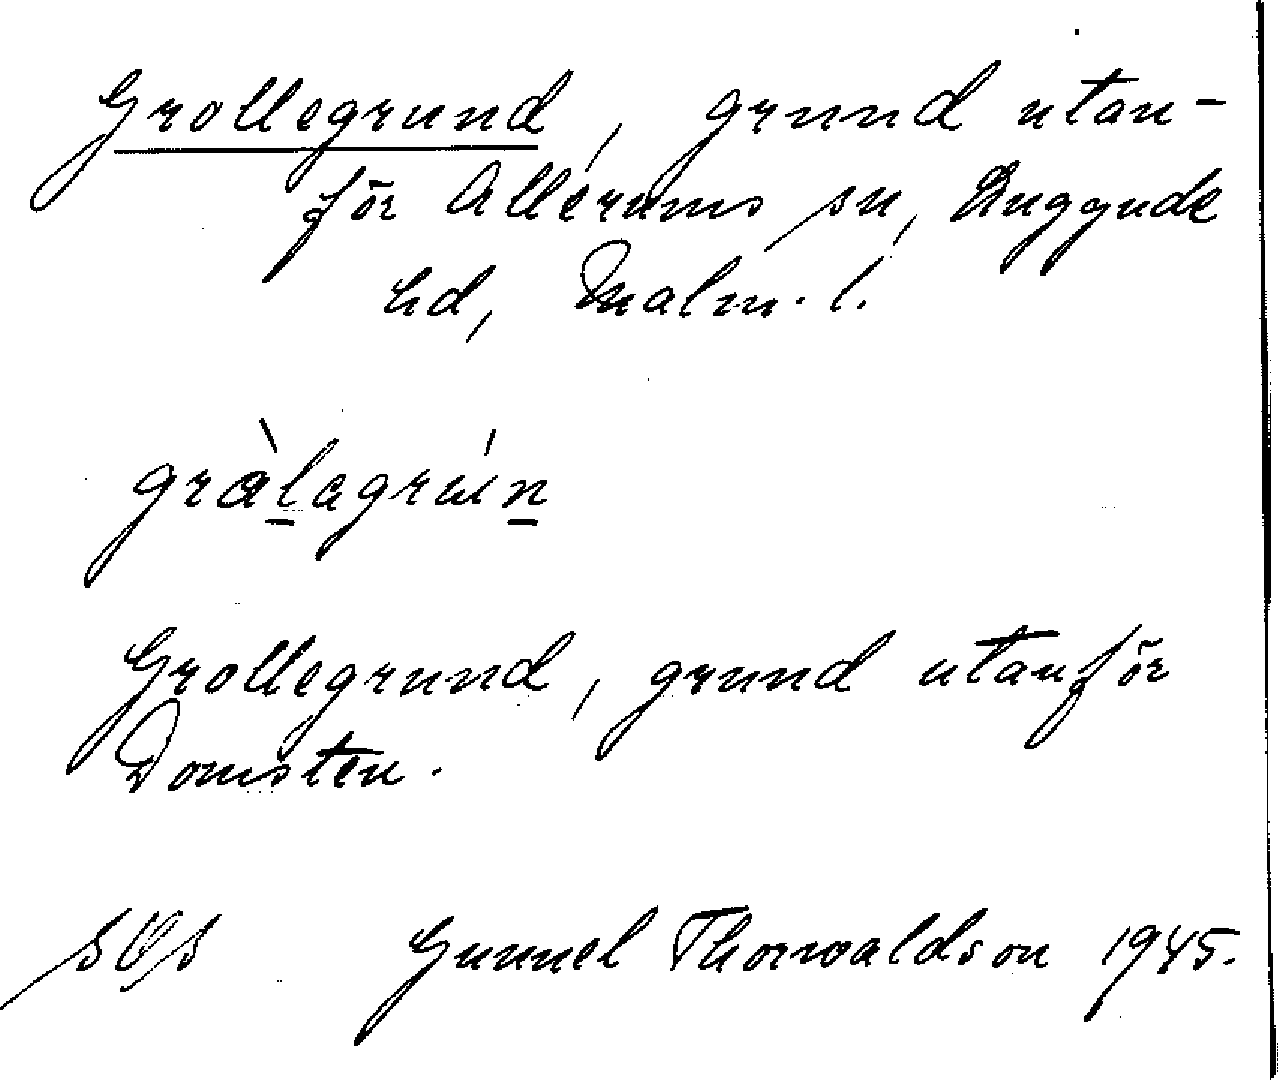 Grollegrund, grund utan-
för Allerums sn, Luggude
hd, Malm. l.
gràlagrún
Grollegrund, grund utanför
Domsten.
Gunnel Thorwaldson 1945.